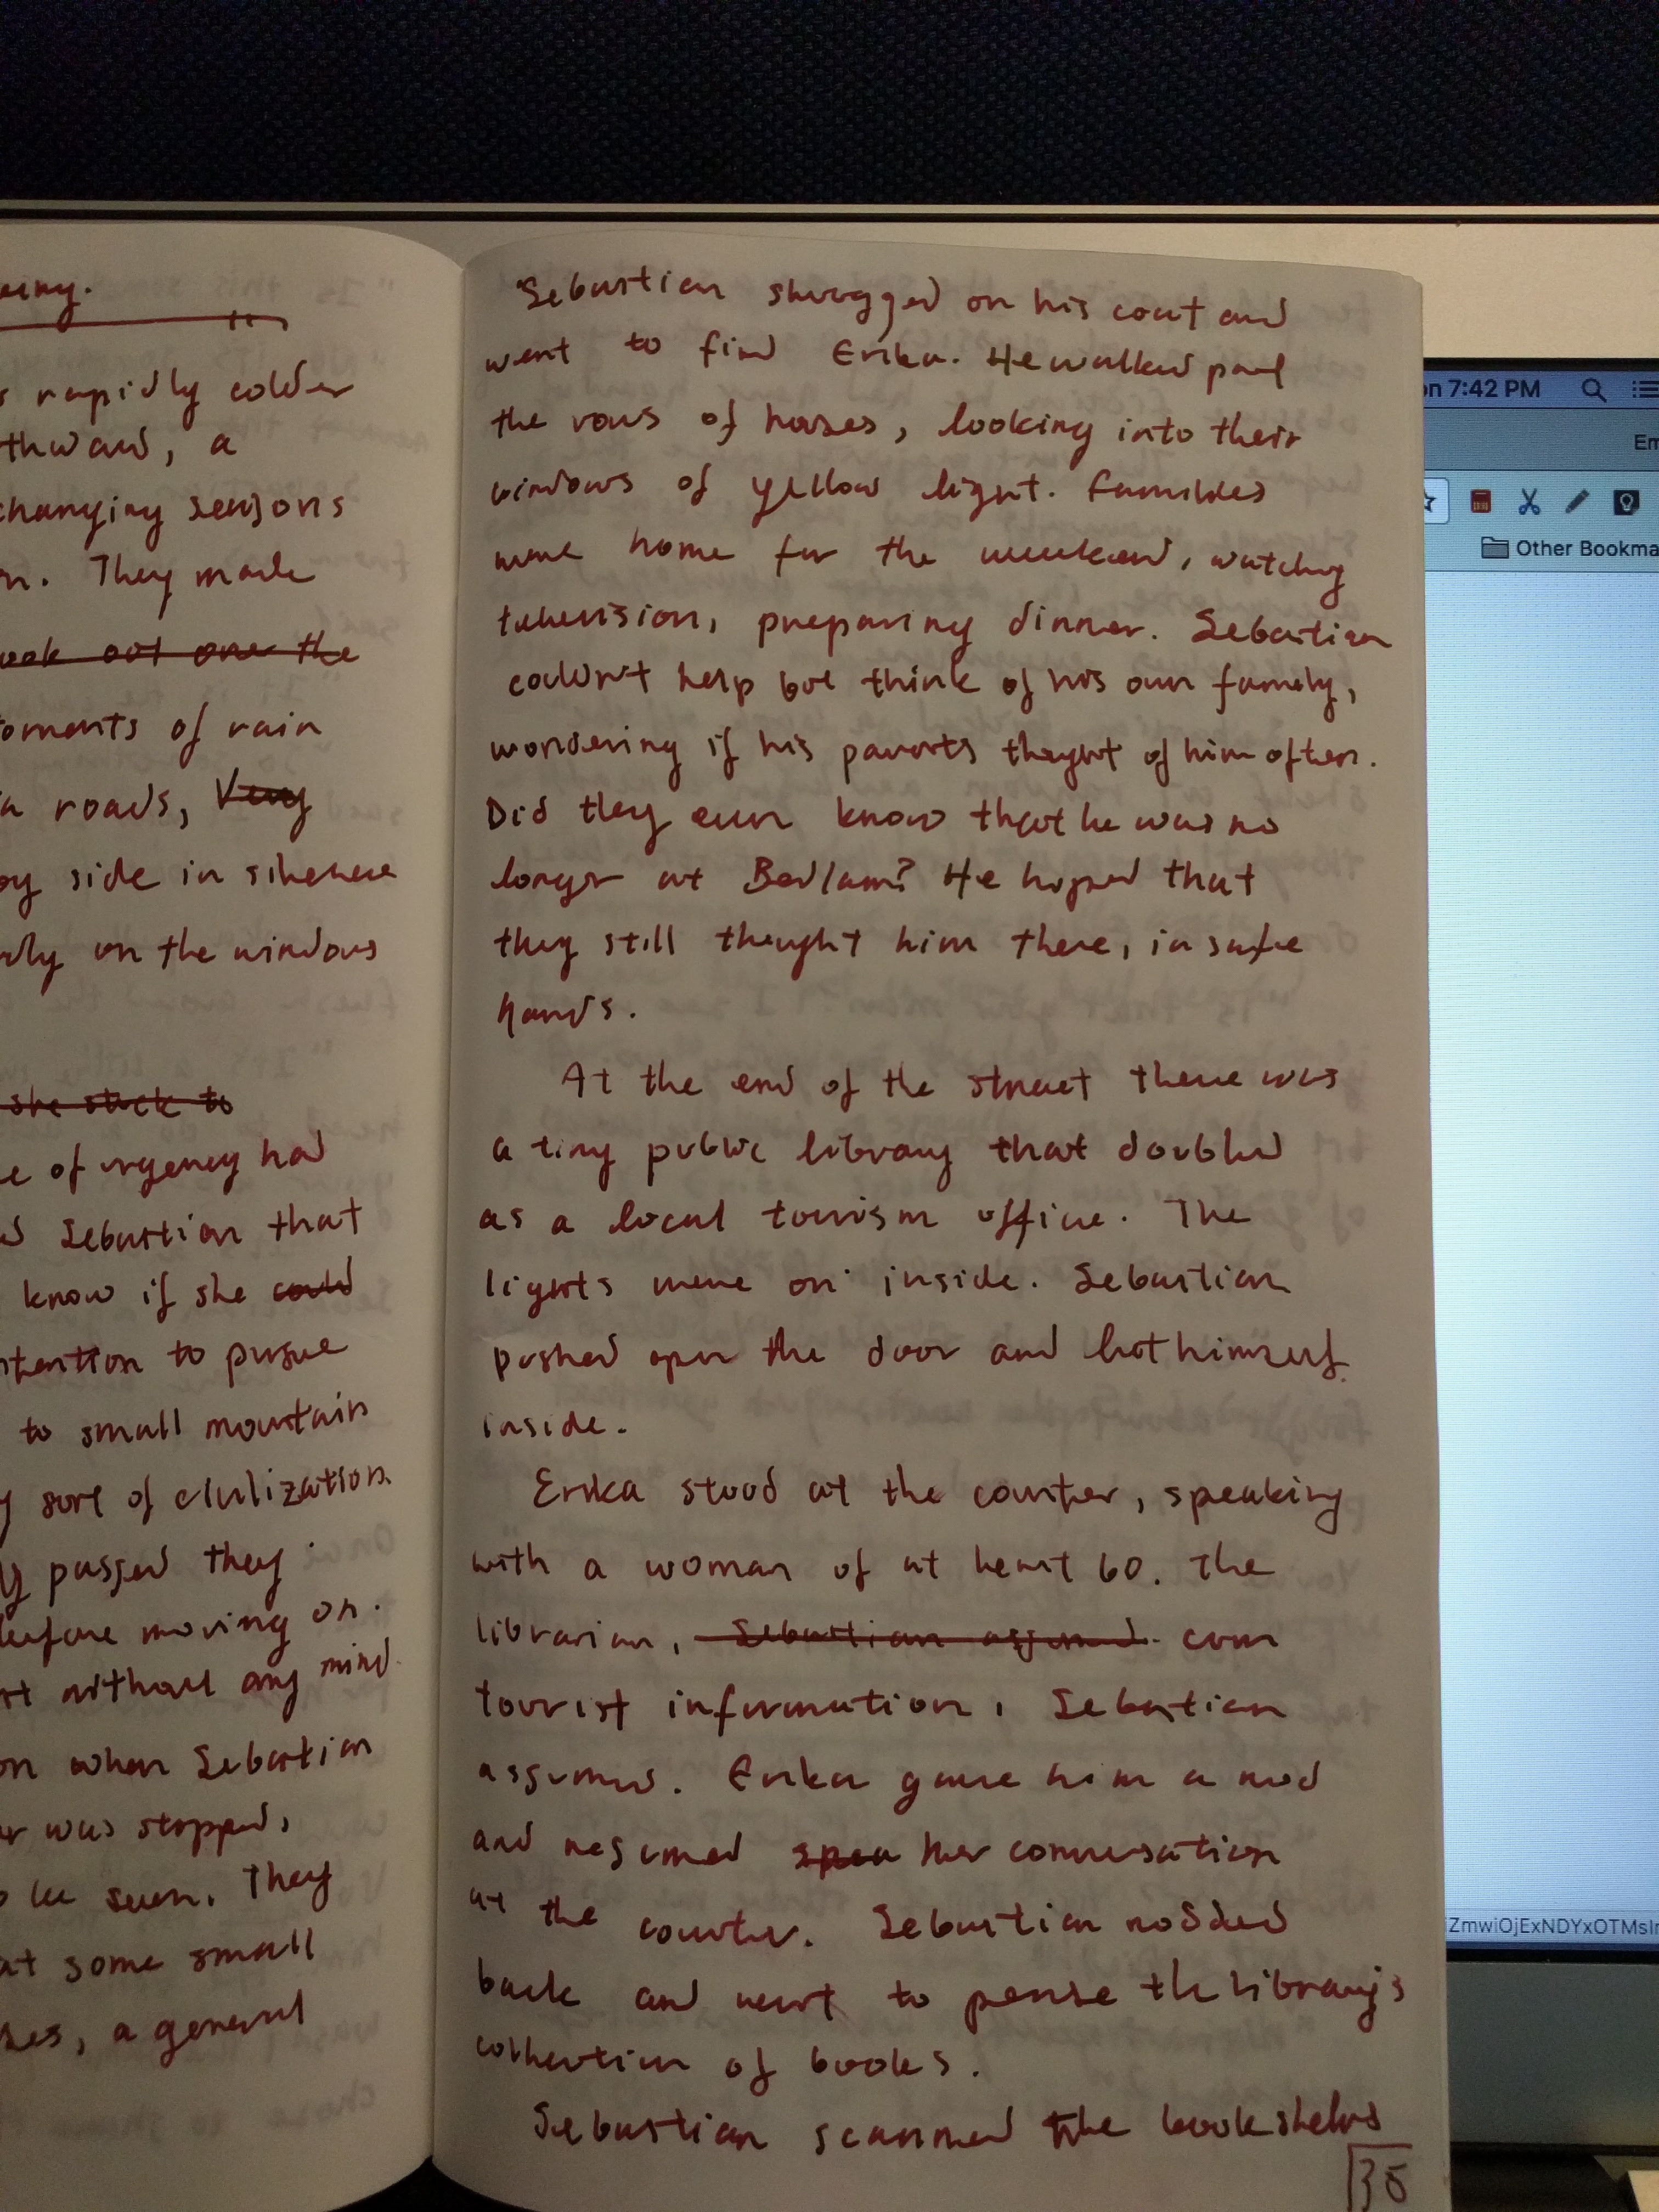 rapidly colder
thward, a
changing seasons
n. They made
ook out over the
oments of rain
roads, Very
by side in silence
on the windows
she stuck to
e of urgency had
Sebastian that
know if she could
ntention to pursue
to small mountain
sort of civilization.
passed they
before moving on.
without any mind
on when Sebastian
was stopped,
be seen. They
at some small
a general
Sebastian shrugged on his coat and
went to find Erika. He walked past
the rows of houses, looking into their
windows of yellow light. Families
were home for the weekend, watching
television, preparing dinner. Sebastian
couldn't help but think of his own family,
wondering if his parents thought of him often.
Did they even know that he was no
longer at Bedlam? He hoped that
they still thought him there, in safe
hands.
At the end of the street there was
a tiny public library that doubled
as a local tourism office. The
lights were on inside. Sebastian
pushed open the door and let himself
inside.
Erika stood at the counter, speaking
with a woman of at least 60. The
librarian, Sebastian assumed. cum
tourist information, Sebastian
assumed. Erika gave him a nod
and resumed spea her conversation
at the counter. Sebastian nodded
back and went to peruse the library's
collection of books.
Sebastian scanned the bookshelves
35
on 7:42 PM
Em
Other Bookma
ZmwiOjExNDYxOTMsIn